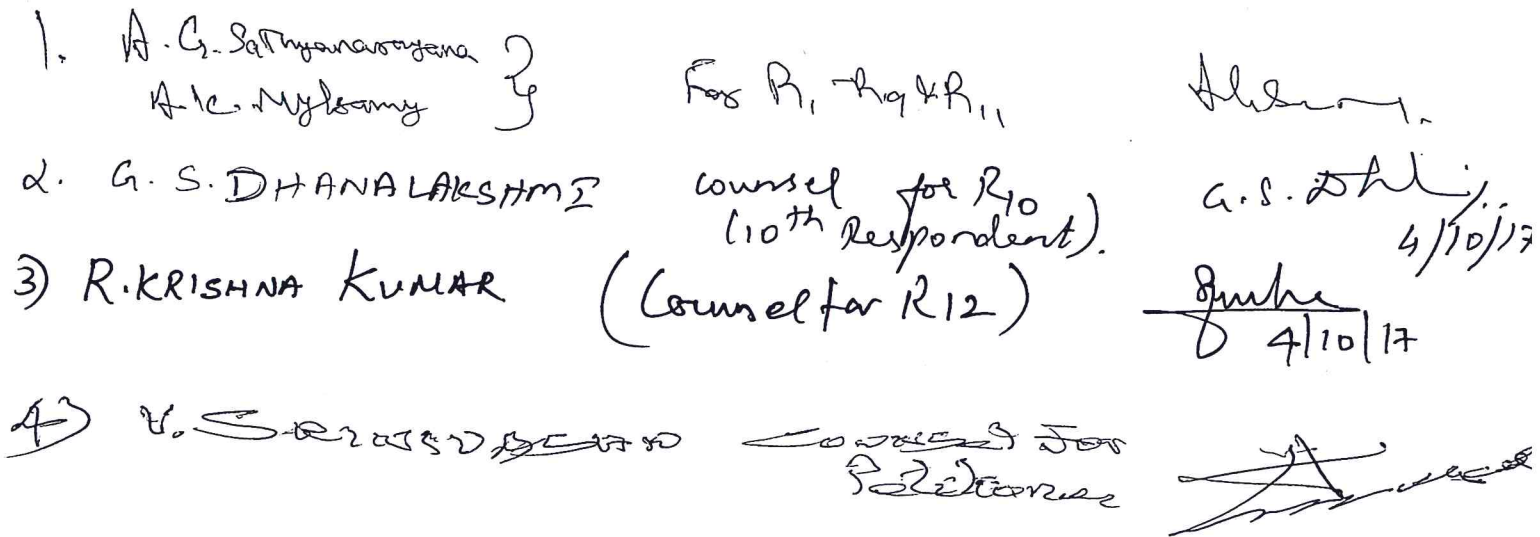 1. A.G. Sathyanarayana }
A.K. Mylsamy
For R1, R9 & R11
2. G.S. DHANALAKSHMI counsel for R10 G.S. Dhl
(10th Respondent). 4/10/17
3) R. KRISHNA KUMAR (Counsel for R12)
4/10/17
4) V. Counsel For
Petitioner